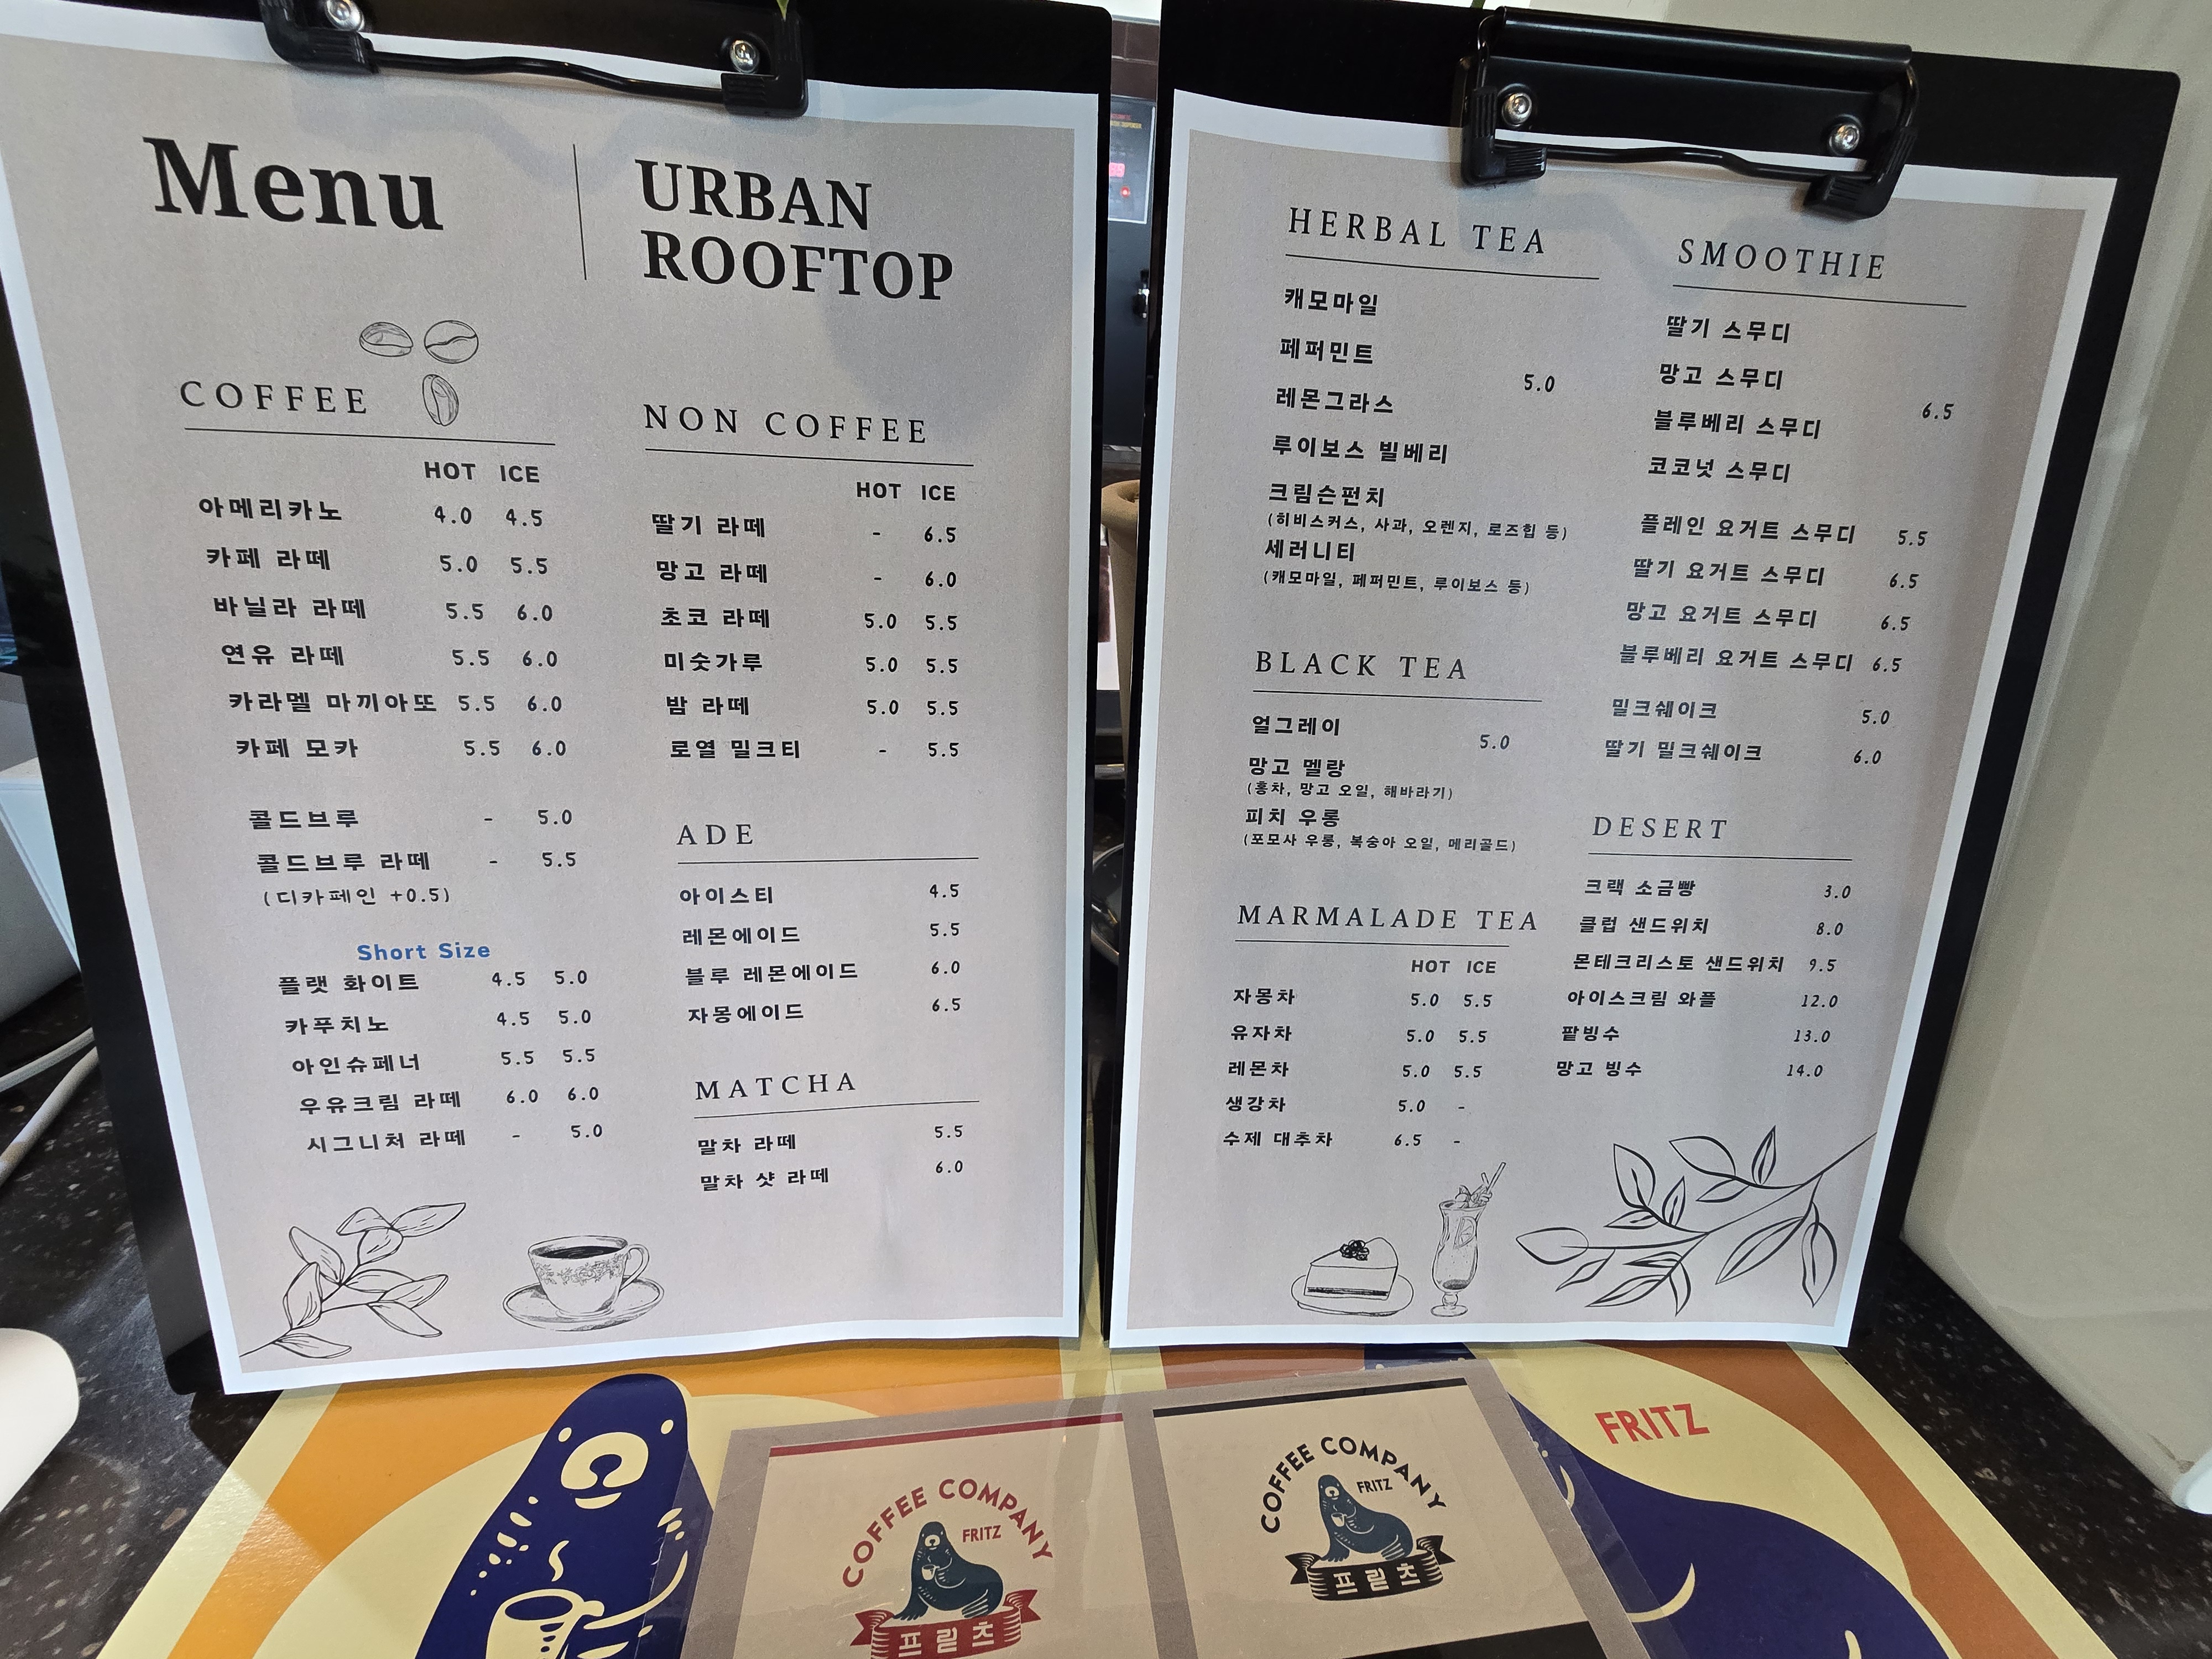 Menu
URBAN
ROOFTOP
COFFEE
HOT ICE
아메리카노 4.0 4.5
카페 라떼 5.0 5.5
바닐라 라떼 5.5 6.0
연유 라떼 5.5 6.0
카라멜 마끼아또 5.5 6.0
카페 모카 5.5 6.0
콜드브루 - 5.0
콜드브루 라떼 - 5.5
(디카페인 +0.5)
Short Size
플랫 화이트 4.5 5.0
카푸치노 4.5 5.0
아인슈페너 5.5 5.5
우유크림 라떼 6.0 6.0
시그니처 라떼 - 5.0
NON COFFEE
HOT ICE
딸기 라떼 - 6.5
망고 라떼 - 6.0
초코 라떼 5.0 5.5
미숫가루 5.0 5.5
밤 라떼 5.0 5.5
로열 밀크티 - 5.5
ADE
아이스티 4.5
레몬에이드 5.5
블루 레몬에이드 6.0
자몽에이드 6.5
MATCHA
말차 라떼 5.5
말차 샷 라떼 6.0
HERBAL TEA
캐모마일
페퍼민트
5.0
레몬그라스
루이보스 빌베리
크림슨펀치
(히비스커스, 사과, 오렌지, 로즈힙 등)
세러니티
(캐모마일, 페퍼민트, 루이보스 등)
BLACK TEA
얼그레이
5.0
망고 멜랑
(홍차, 망고 오일, 해바라기)
피치 우롱
(포모사 우롱, 복숭아 오일, 메리골드)
MARMALADE TEA
HOT ICE
자몽차 5.0 5.5
유자차 5.0 5.5
레몬차 5.0 5.5
생강차 5.0 -
수제 대추차 6.5 -
SMOOTHIE
딸기 스무디
망고 스무디
6.5
블루베리 스무디
코코넛 스무디
플레인 요거트 스무디 5.5
딸기 요거트 스무디 6.5
망고 요거트 스무디 6.5
블루베리 요거트 스무디 6.5
밀크쉐이크 5.0
딸기 밀크쉐이크 6.0
DESERT
크랙 소금빵 3.0
클럽 샌드위치 8.0
몬테크리스토 샌드위치 9.5
아이스크림 와플 12.0
팥빙수 13.0
망고 빙수 14.0
FRITZ
COFFEE COMPANY
FRITZ
프릳츠
COFFEE COMPANY
FRITZ
프릳츠